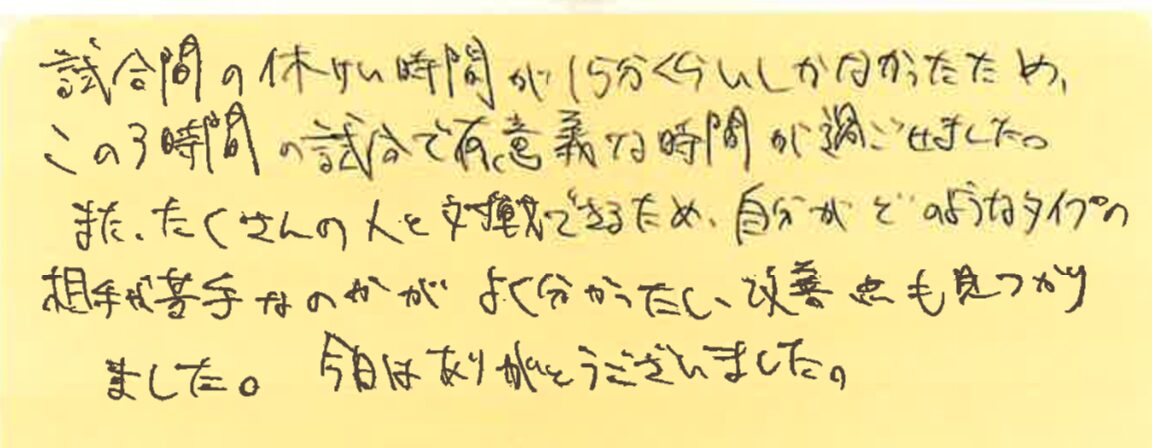 試合間の休けい時間が15分くらいしかなかったため、
この3時間の試合で有意義な時間が過ごせました。
また、たくさんの人と対戦できるため、自分がどのようなタイプの
相手が苦手なのかがよく分かったし、改善点も見つかり
ました。 今日はありがとうございました。